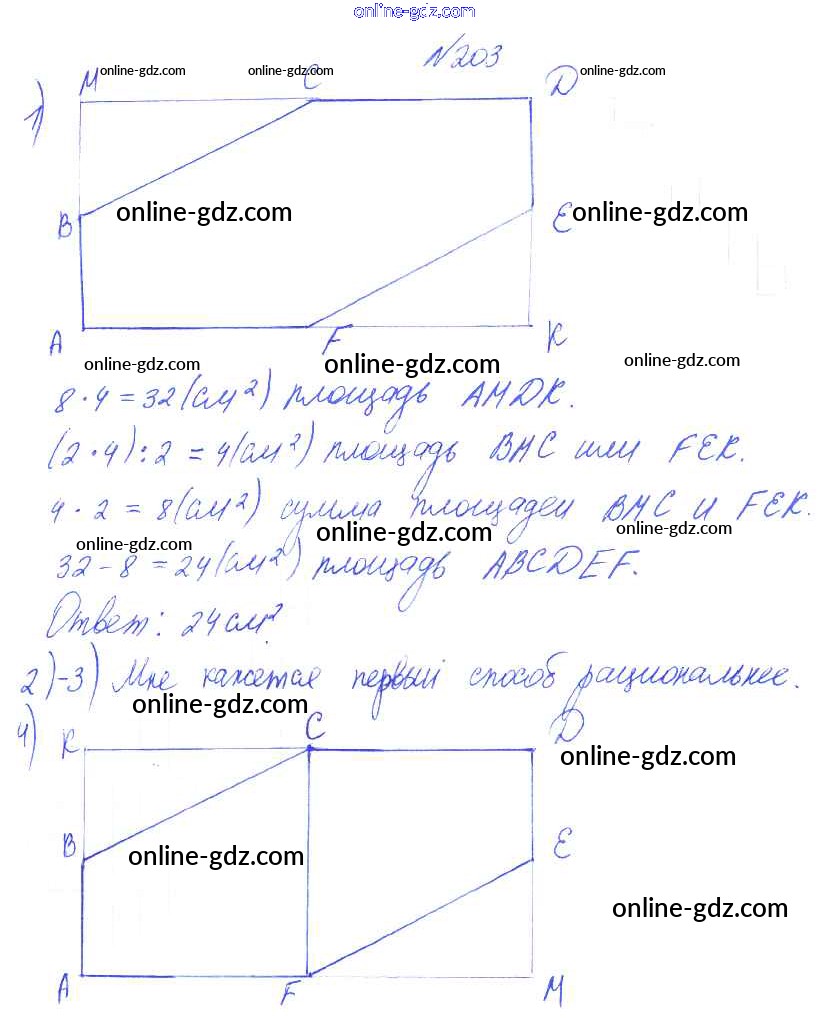 online-gdz.com
N203
1)
M online-gdz.com online-gdz.com C D online-gdz.com
B online-gdz.com E online-gdz.com
A F K
online-gdz.com online-gdz.com online-gdz.com
8 · 4 = 32 (см²) площадь AMDK.
(2 · 4) : 2 = 4 (см²) площадь BMC или FEK.
4 · 2 = 8 (см²) сумма площадей BMC и FEK.
online-gdz.com online-gdz.com online-gdz.com
32 - 8 = 24 (см²) площадь ABCDEF.
Ответ: 24 см².
2)-3) Мне кажется первый способ рациональнее.
online-gdz.com
4) K C D
online-gdz.com
B online-gdz.com E
online-gdz.com
A F M